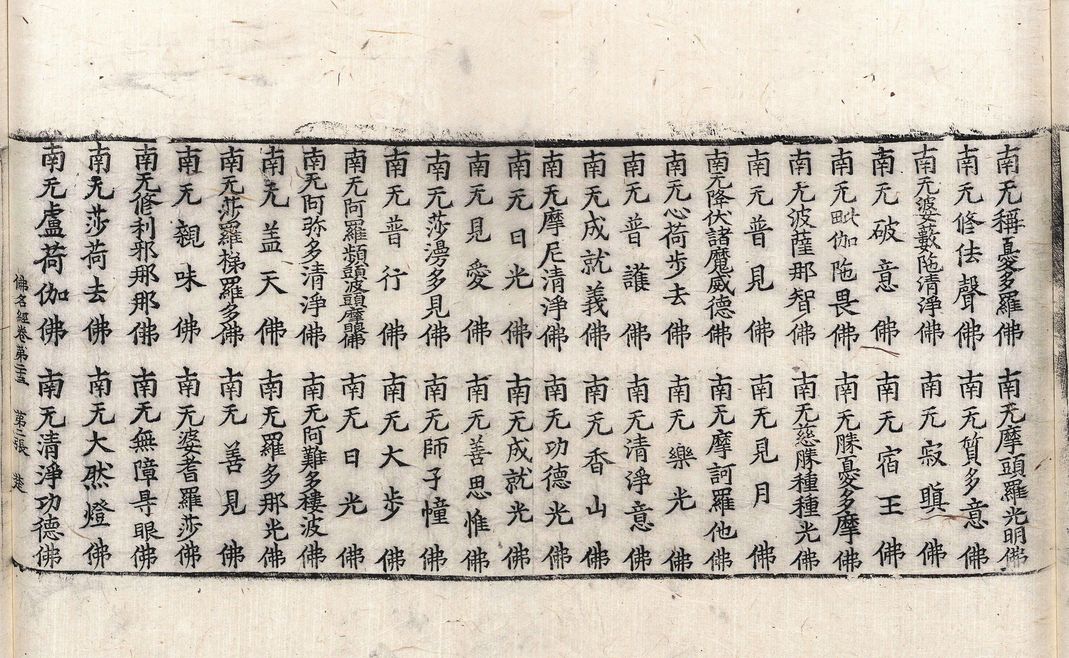 南无稱憂多羅佛 南无摩頭羅光明佛
南无修佉聲佛 南无質多意佛
南无婆藪陁清淨佛 南无寂瞋佛
南无破意佛 南无宿王佛
南无毗伽陁畏佛 南无勝憂多摩佛
南无波薩那智佛 南无慈勝種種光佛
南无普見佛 南无見月佛
南无降伏諸魔威德佛 南无摩訶羅他佛
南无心荷步去佛 南无樂光佛
南无普護佛 南无清淨意佛
南无成就義佛 南无香山佛
南无摩尼清淨佛 南无功德光佛
南无日光佛 南无成就光佛
南无見愛佛 南无善思惟佛
南无莎漡多見佛 南无師子幢佛
南无普行佛 南无大步佛
南无阿羅頻頭波頭摩佛 南无日光佛
南无阿弥多清淨佛 南无阿難多樓波佛
南无盖天佛 南无羅多那光佛
南无莎羅梯羅多佛 南无善見佛
南无親味佛 南无婆耆羅莎佛
南无修利邪那那佛 南无無障㝵眼佛
南无莎荷去佛 南无大然燈佛
南无盧荷伽佛 南无清淨功德佛
佛名經卷第二十五 第二張 楚